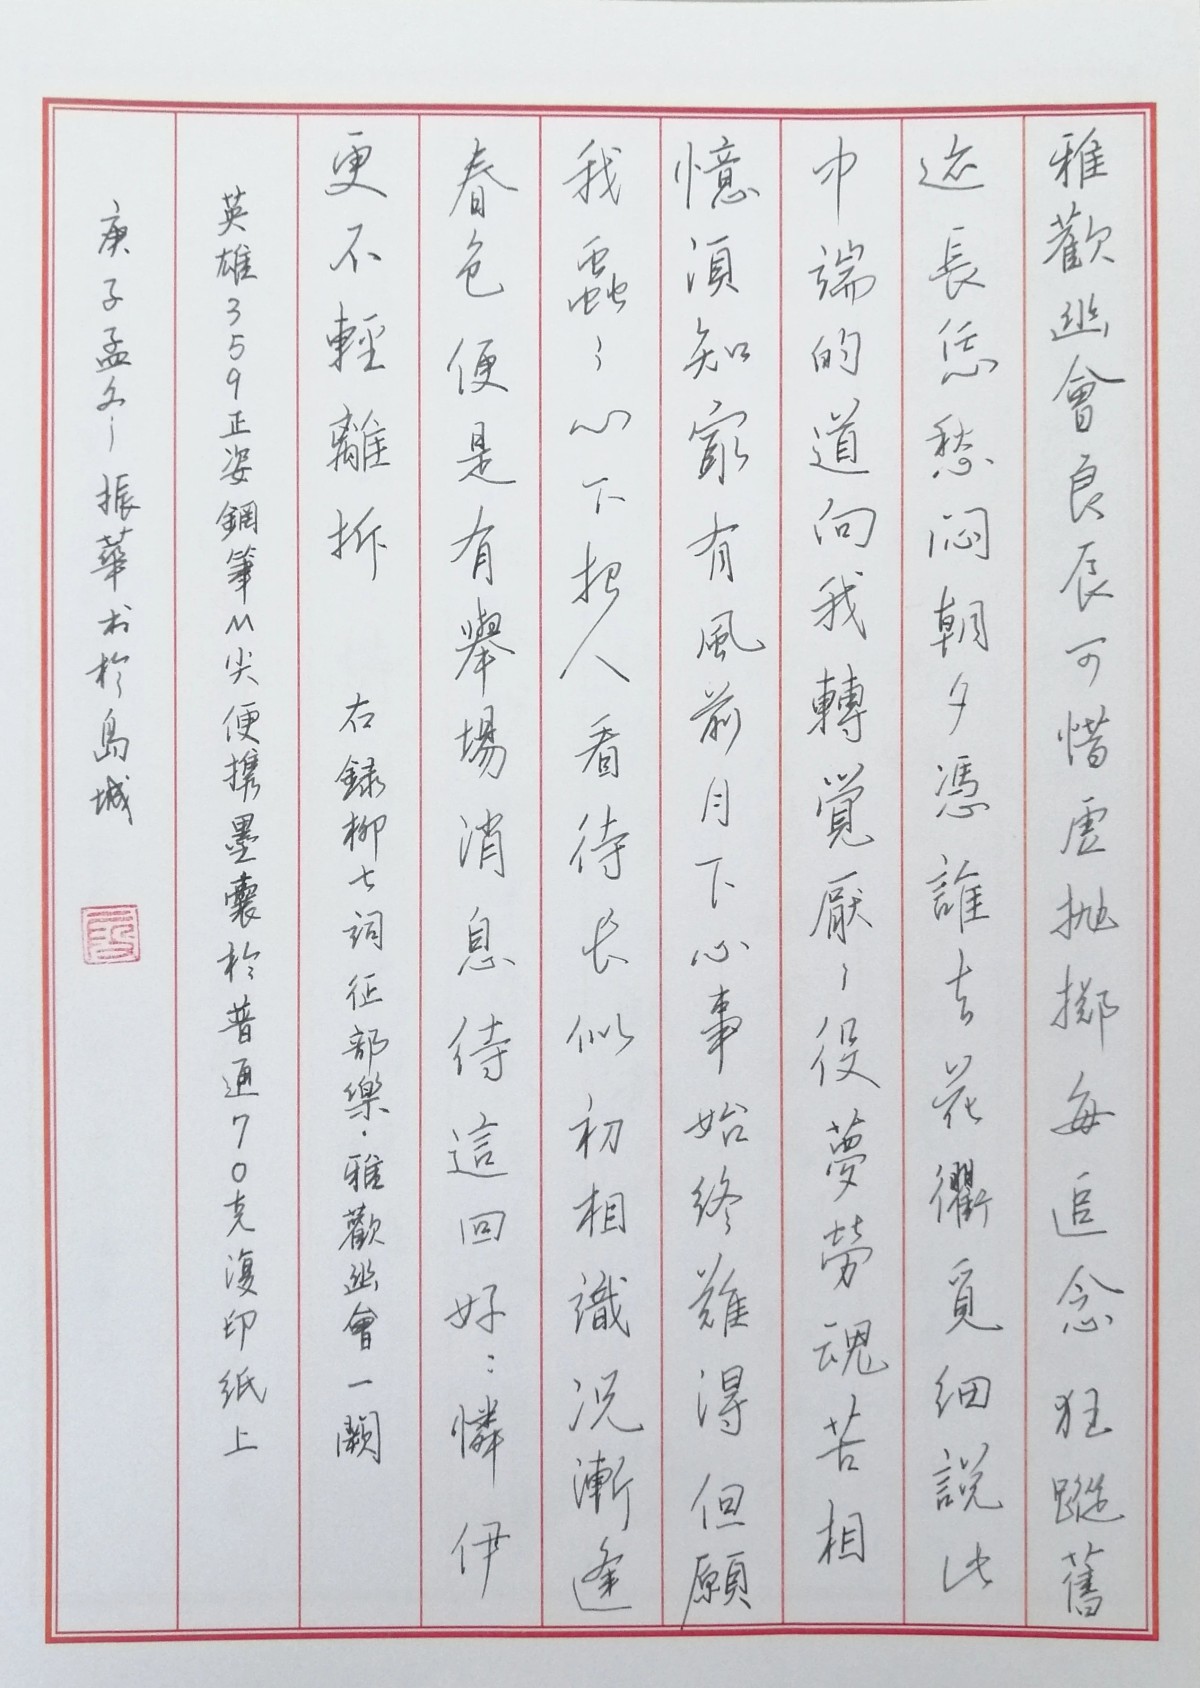 雅歡幽會良辰可惜虛抛擲每追念狂蹤舊
迹長恁愁悶朝夕憑誰去花衢覓細說此
中端的道向我轉覺厭〻役夢勞魂苦相
憶須知最有風前月下心事始終難得但願
我蟲〻心下把人看待长似初相識况漸逢
春色便是有舉場消息待這回好〻憐伊
更不輕離拆 右録柳七詞征部樂·雅歡幽會一闋
英雄359正姿鋼筆M尖便携墨囊於普通70克復印纸上
庚子孟冬 振華书於島城